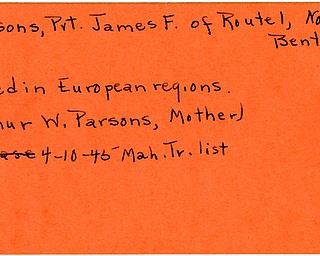 sons, Pvt. James F. of Route 1, No
Bent
ed in European regions.
hur W. Parsons, Mother)
ease 4-10-45 Mah. Tr. list